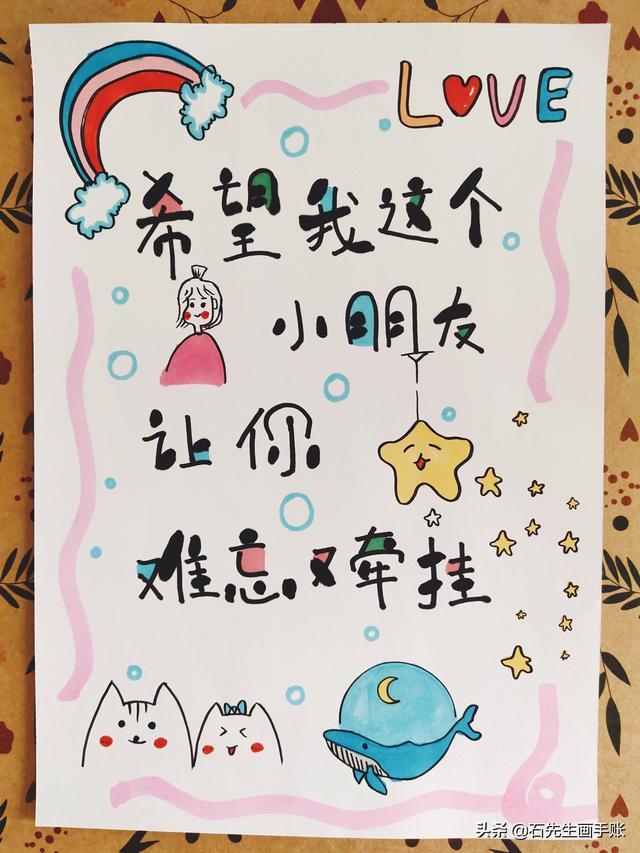 LOVE
希望我这个
小朋友
让你
难忘又牵挂
头条 @石先生画手账